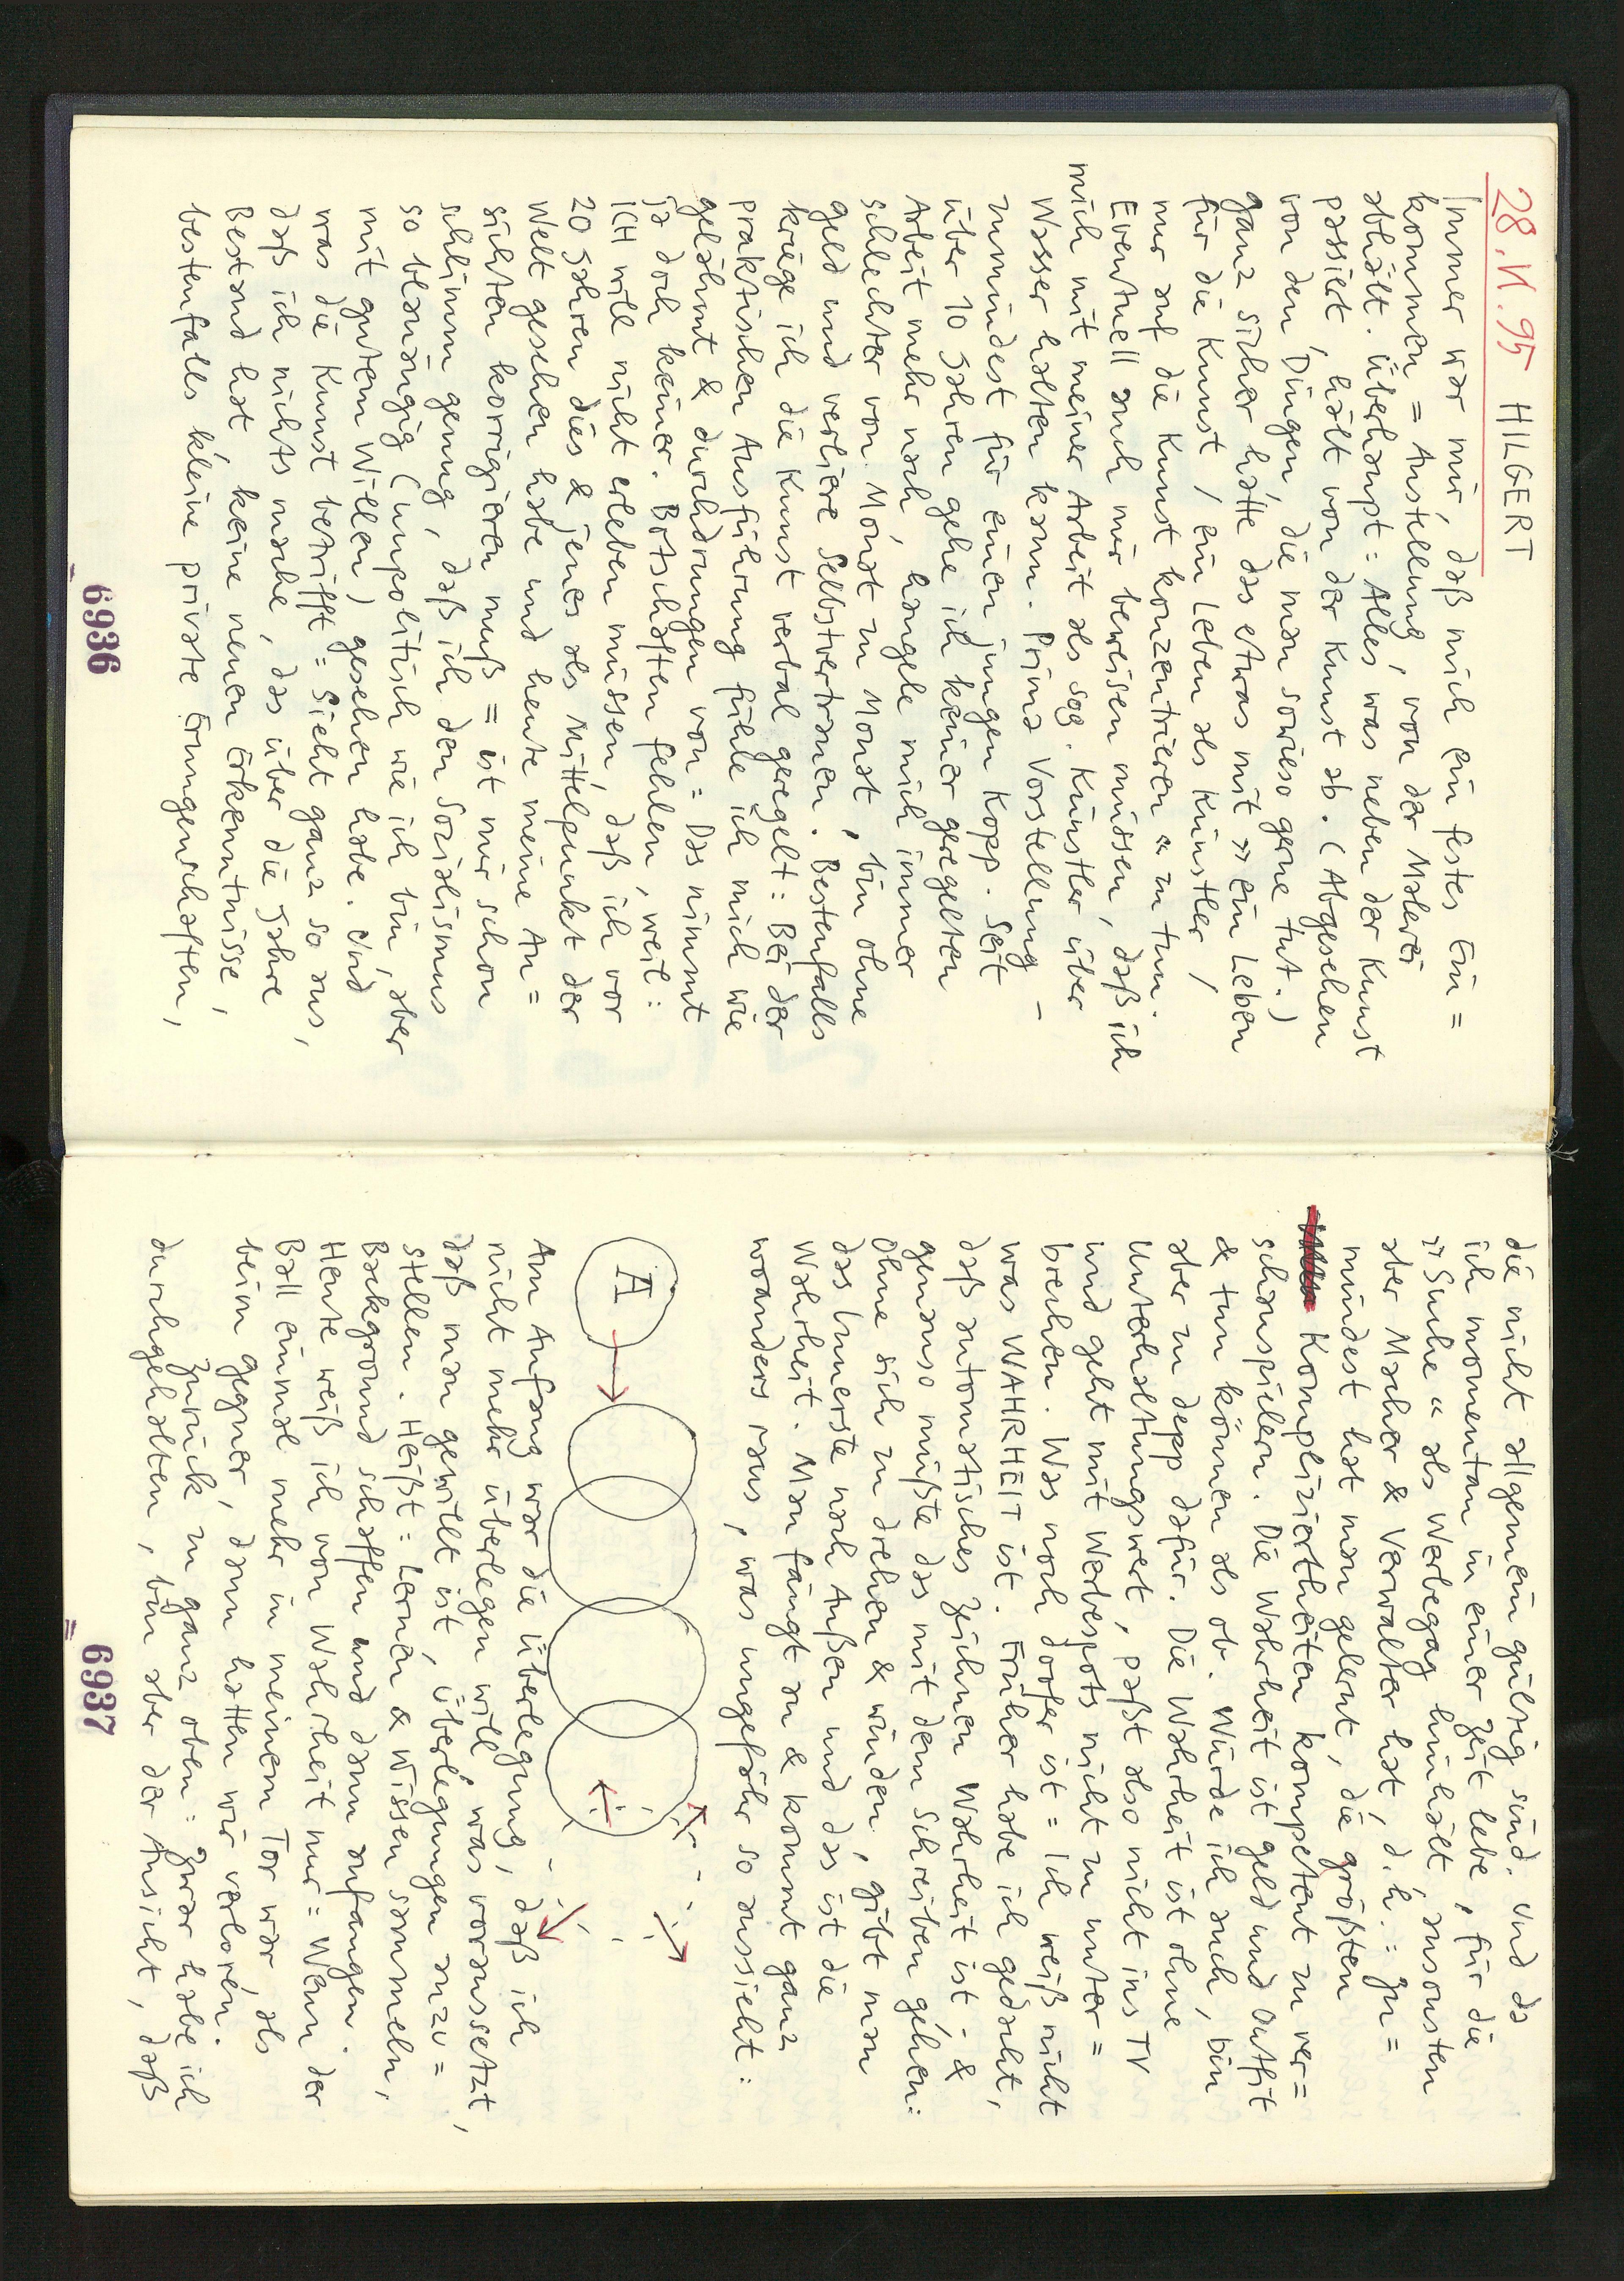 28.11.95 HILGERT
Immer war mir, daß mich ein festes Ein=
kommen = Anstellung, von der Malerei
abhält. Überhaupt: Alles was neben der Kunst
passiert hält von der Kunst ab. (Abgesehen
von den Dingen, die man sowieso gerne tut.)
Ganz sicher hätte das etwas mit » ein Leben
für die Kunst / ein Leben als Künstler /
nur auf die Kunst konzentrieren « zu tun.
Eventuell auch mir beweisen müssen, daß ich
mich mit meiner Arbeit als sog. Künstler über
Wasser halten kann. Prima Vorstellung –
zumindest für einen jungen Kopp. Seit
über 10 Jahren gehe ich keiner geregelten
Arbeit mehr nach, hangle mich immer
schlechter von Monat zu Monat, bin ohne
Geld und verliere Selbstvertrauen. Bestenfalls
kriege ich die Kunst verbal geregelt: Bei der
praktischen Ausführung fühle ich mich wie
gelähmt & durchdrungen von = Das nimmt
ja doch keiner. Botschaften fehlen, weil:
ICH will nicht erleben müssen, daß ich vor
20 Jahren dies & jenes als Mittelpunkt der
Welt gesehen habe und heute meine An=
sichten korrigieren muß = ist mir schon
schlimm genug, daß ich den Sozialismus
so blauäugig (unpolitisch wie ich bin, aber
mit gutem Willen) gesehen habe. Und
was die Kunst betrifft = Sieht ganz so aus,
daß ich nichts mache, das über die Jahre
Bestand hat, keine neuen Erkenntnisse,
bestenfalls kleine private Errungenschaften,
6936
die nicht allgemein gültig sind. Und da
ich momentan in einer Zeit lebe, für die
» Suche « als Werbegag hinhält, ansonsten
aber Macher & Verwalter hat, d.h.: Zu=
mindest hat man gelernt, die größten
Kompliziertheiten kompetent zu ver=
schauspielern. Die Wahrheit ist Geld und Outfit
& tun können als ob. Würde ich auch, bin
aber zu depp dafür. Die Wahrheit ist ohne
Unterhaltungswert, paßt also nicht ins TV
und geht mit Werbespots nicht zu unter=
brechen. Was noch doofer ist = Ich weiß nicht
was WAHRHEIT ist. Früher habe ich gedacht,
daß automatisches Zeichnen Wahrheit ist - &
genauso müßte das mit dem Schreiben gehen:
Ohne sich zu drehen & winden, gibt man
das Innerste nach Außen und das ist die
Wahrheit. Man fängt an & kommt ganz
woanders raus, was ungefähr so aussieht:
A
Am Anfang war die Überlegung, daß ich
nicht mehr überlegen will, was voraussetzt,
daß man gewillt ist, Überlegungen anzu=
stellen. Heißt: Lernen & Wissen sammeln,
Background schaffen und dann anfangen.
Heute weiß ich von Wahrheit nur = Wenn der
Ball einmal mehr in meinem Tor war, als
beim Gegner, dann hatten wir verloren.
Zurück zu ganz oben: Zwar habe ich
durchgehalten, bin aber der Ansicht, daß
6937